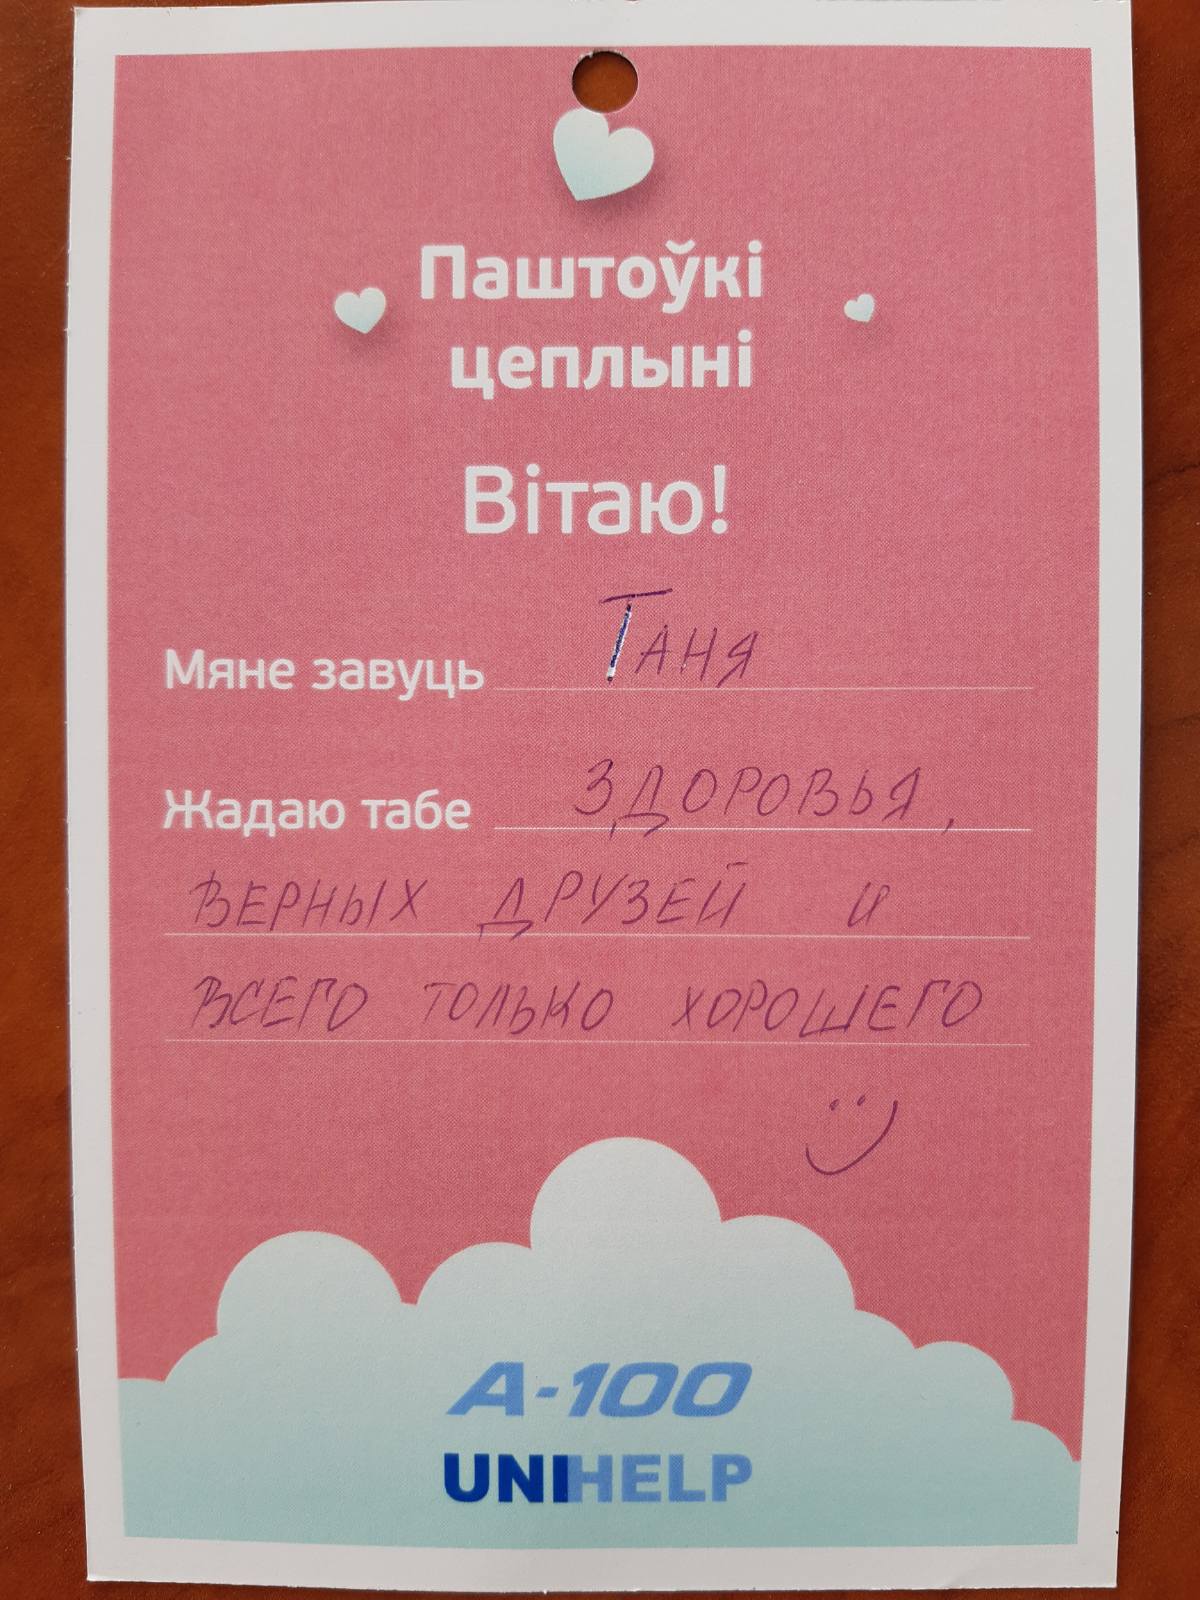 Паштоўкі
цеплыні
Вітаю!
Мяне завуць Таня
Жадаю табе ЗДОРОВЬЯ,
ВЕРНЫХ ДРУЗЕЙ И
ВСЕГО ТОЛЬКО ХОРОШЕГО
A-100
UNIHELP